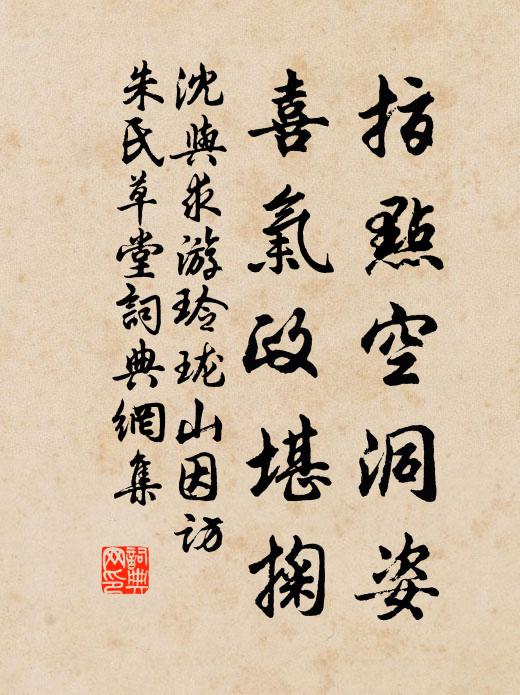 指點空洞姿
喜氣政堪掬
沈與求游玲瓏山因訪
朱氏草堂詞典網集
詞典
网印